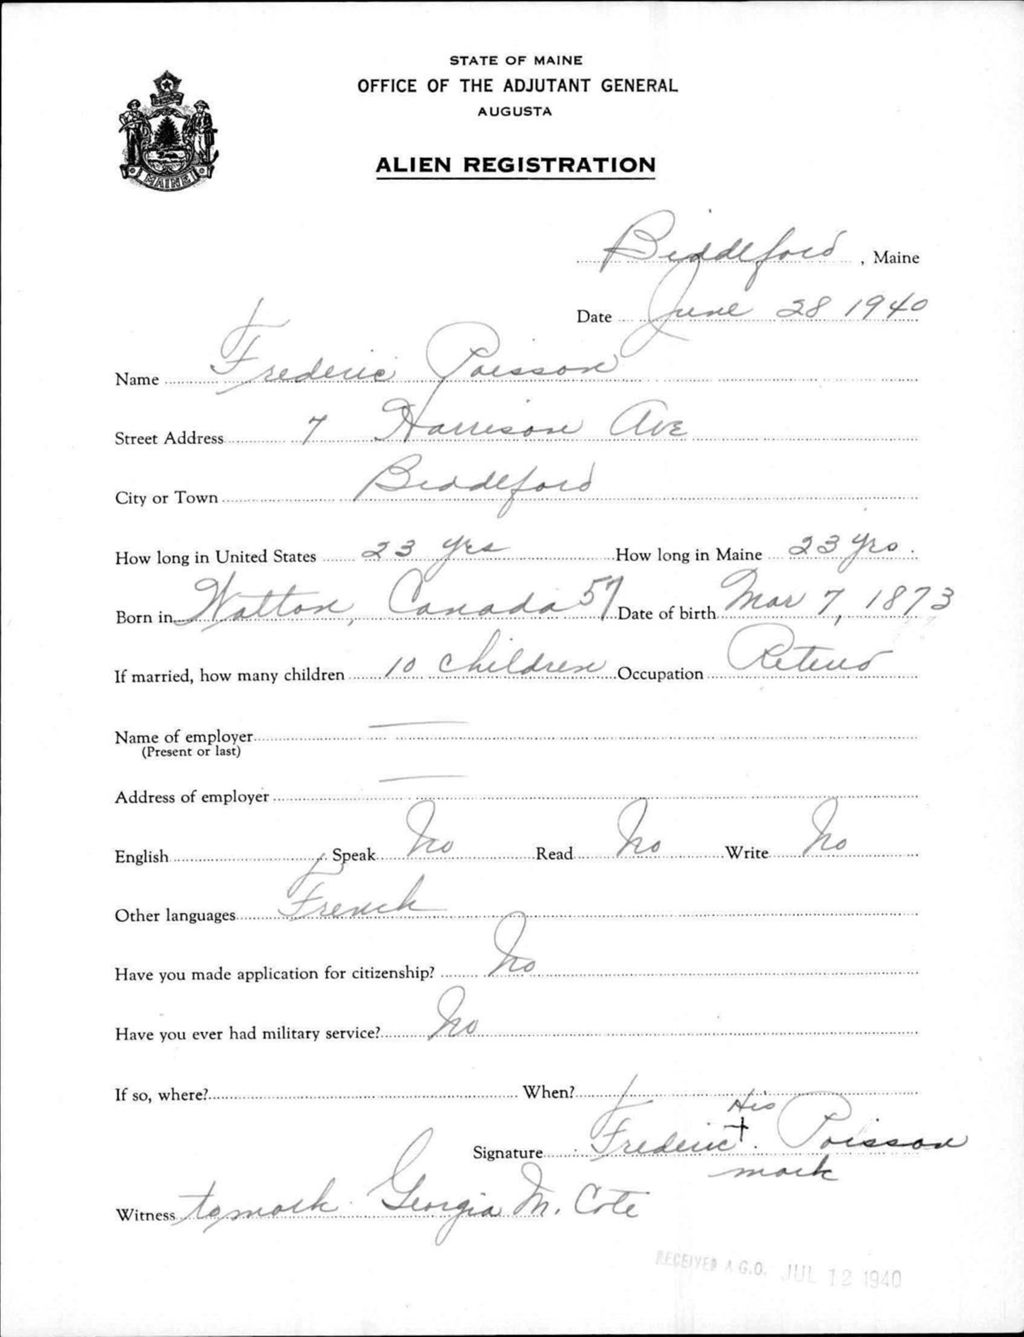 STATE OF MAINE
OFFICE OF THE ADJUTANT GENERAL
AUGUSTA
ALIEN REGISTRATION
MAINE
Biddeford, Maine
Date June 28 1940
Name Frederic Poisson
Street Address 7 Harrison Ave
City or Town Biddeford
How long in United States 23 yrs How long in Maine 23 yrs.
Born in Walton, Canada 57 Date of birth Mar 7, 1873
If married, how many children 10 children Occupation Retired
Name of employer
(Present or last)
Address of employer
English Speak No Read No Write No
Other languages French
Have you made application for citizenship? No
Have you ever had military service? No
If so, where? When?
His
Signature Frederic + Poisson
mark
Witness to mark Georgia M. Cote
RECEIVED A.G.O. JUL 12 1940